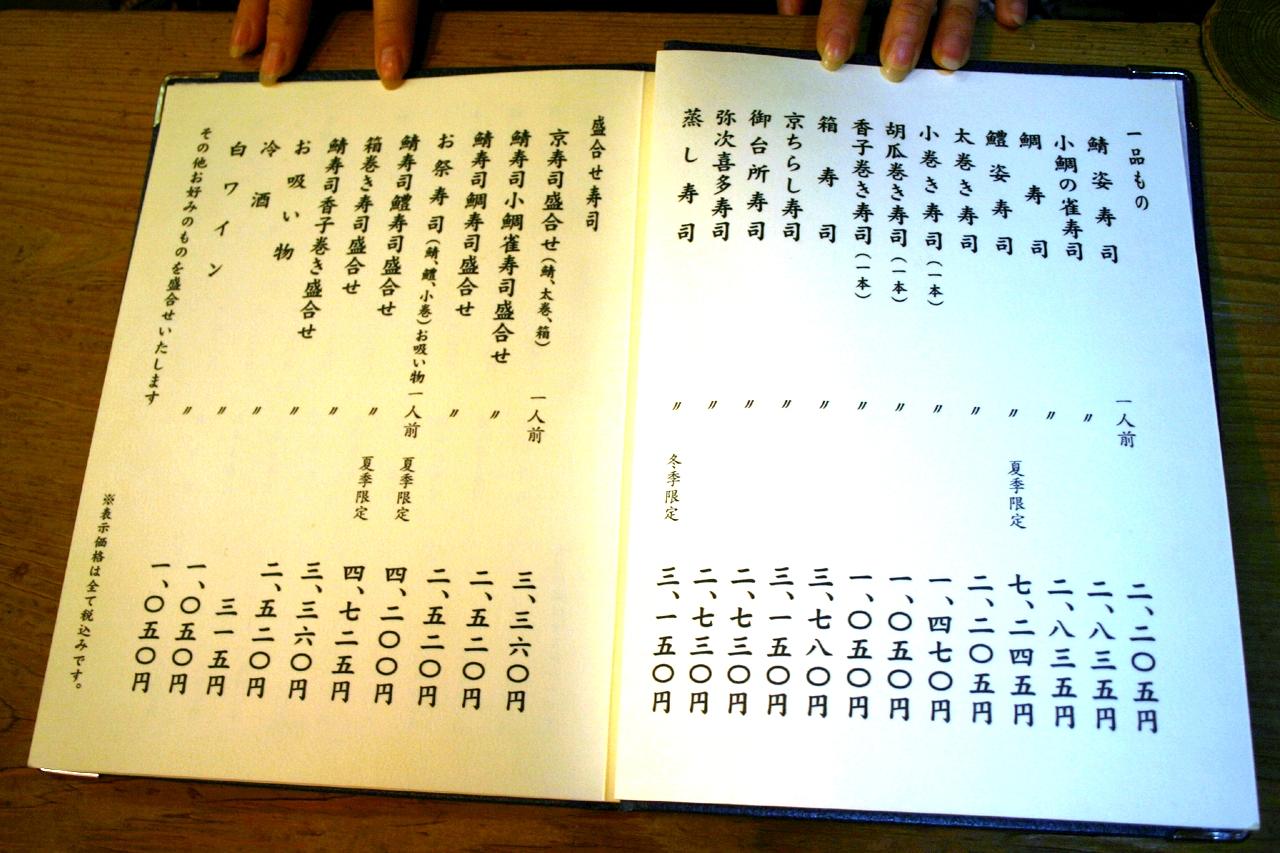 一品もの
鯖姿寿司 一人前 二、二〇五円
小鯛の雀寿司 〃 二、八三五円
鯛寿司 〃 二、八三五円
鱧姿寿司 〃 夏季限定 七、二四五円
太巻き寿司 〃 二、二〇五円
小巻き寿司(一本) 〃 一、四七〇円
胡瓜巻き寿司(一本) 〃 一、〇五〇円
香子巻き寿司(一本) 〃 一、〇五〇円
箱寿司 〃 三、七八〇円
京ちらし寿司 〃 三、一五〇円
御台所寿司 〃 二、七三〇円
弥次喜多寿司 〃 二、七三〇円
蒸し寿司 〃 冬季限定 三、一五〇円
盛合せ寿司
京寿司盛合せ(鯖、太巻、箱) 一人前 三、三六〇円
鯖寿司小鯛雀寿司盛合せ 〃 二、五二〇円
鯖寿司鯛寿司盛合せ 〃 二、五二〇円
お祭寿司(鯖、鱧、小巻)お吸い物 一人前 夏季限定 四、二〇〇円
鯖寿司鱧寿司盛合せ 〃 夏季限定 四、七二五円
箱巻き寿司盛合せ 〃 三、三六〇円
鯖寿司香子巻き盛合せ 〃 二、五二〇円
お吸い物 〃 三一五円
冷酒 〃 一、〇五〇円
白ワイン 〃 一、〇五〇円
その他お好みのものを盛合せいたします
※表示価格は全て税込みです。